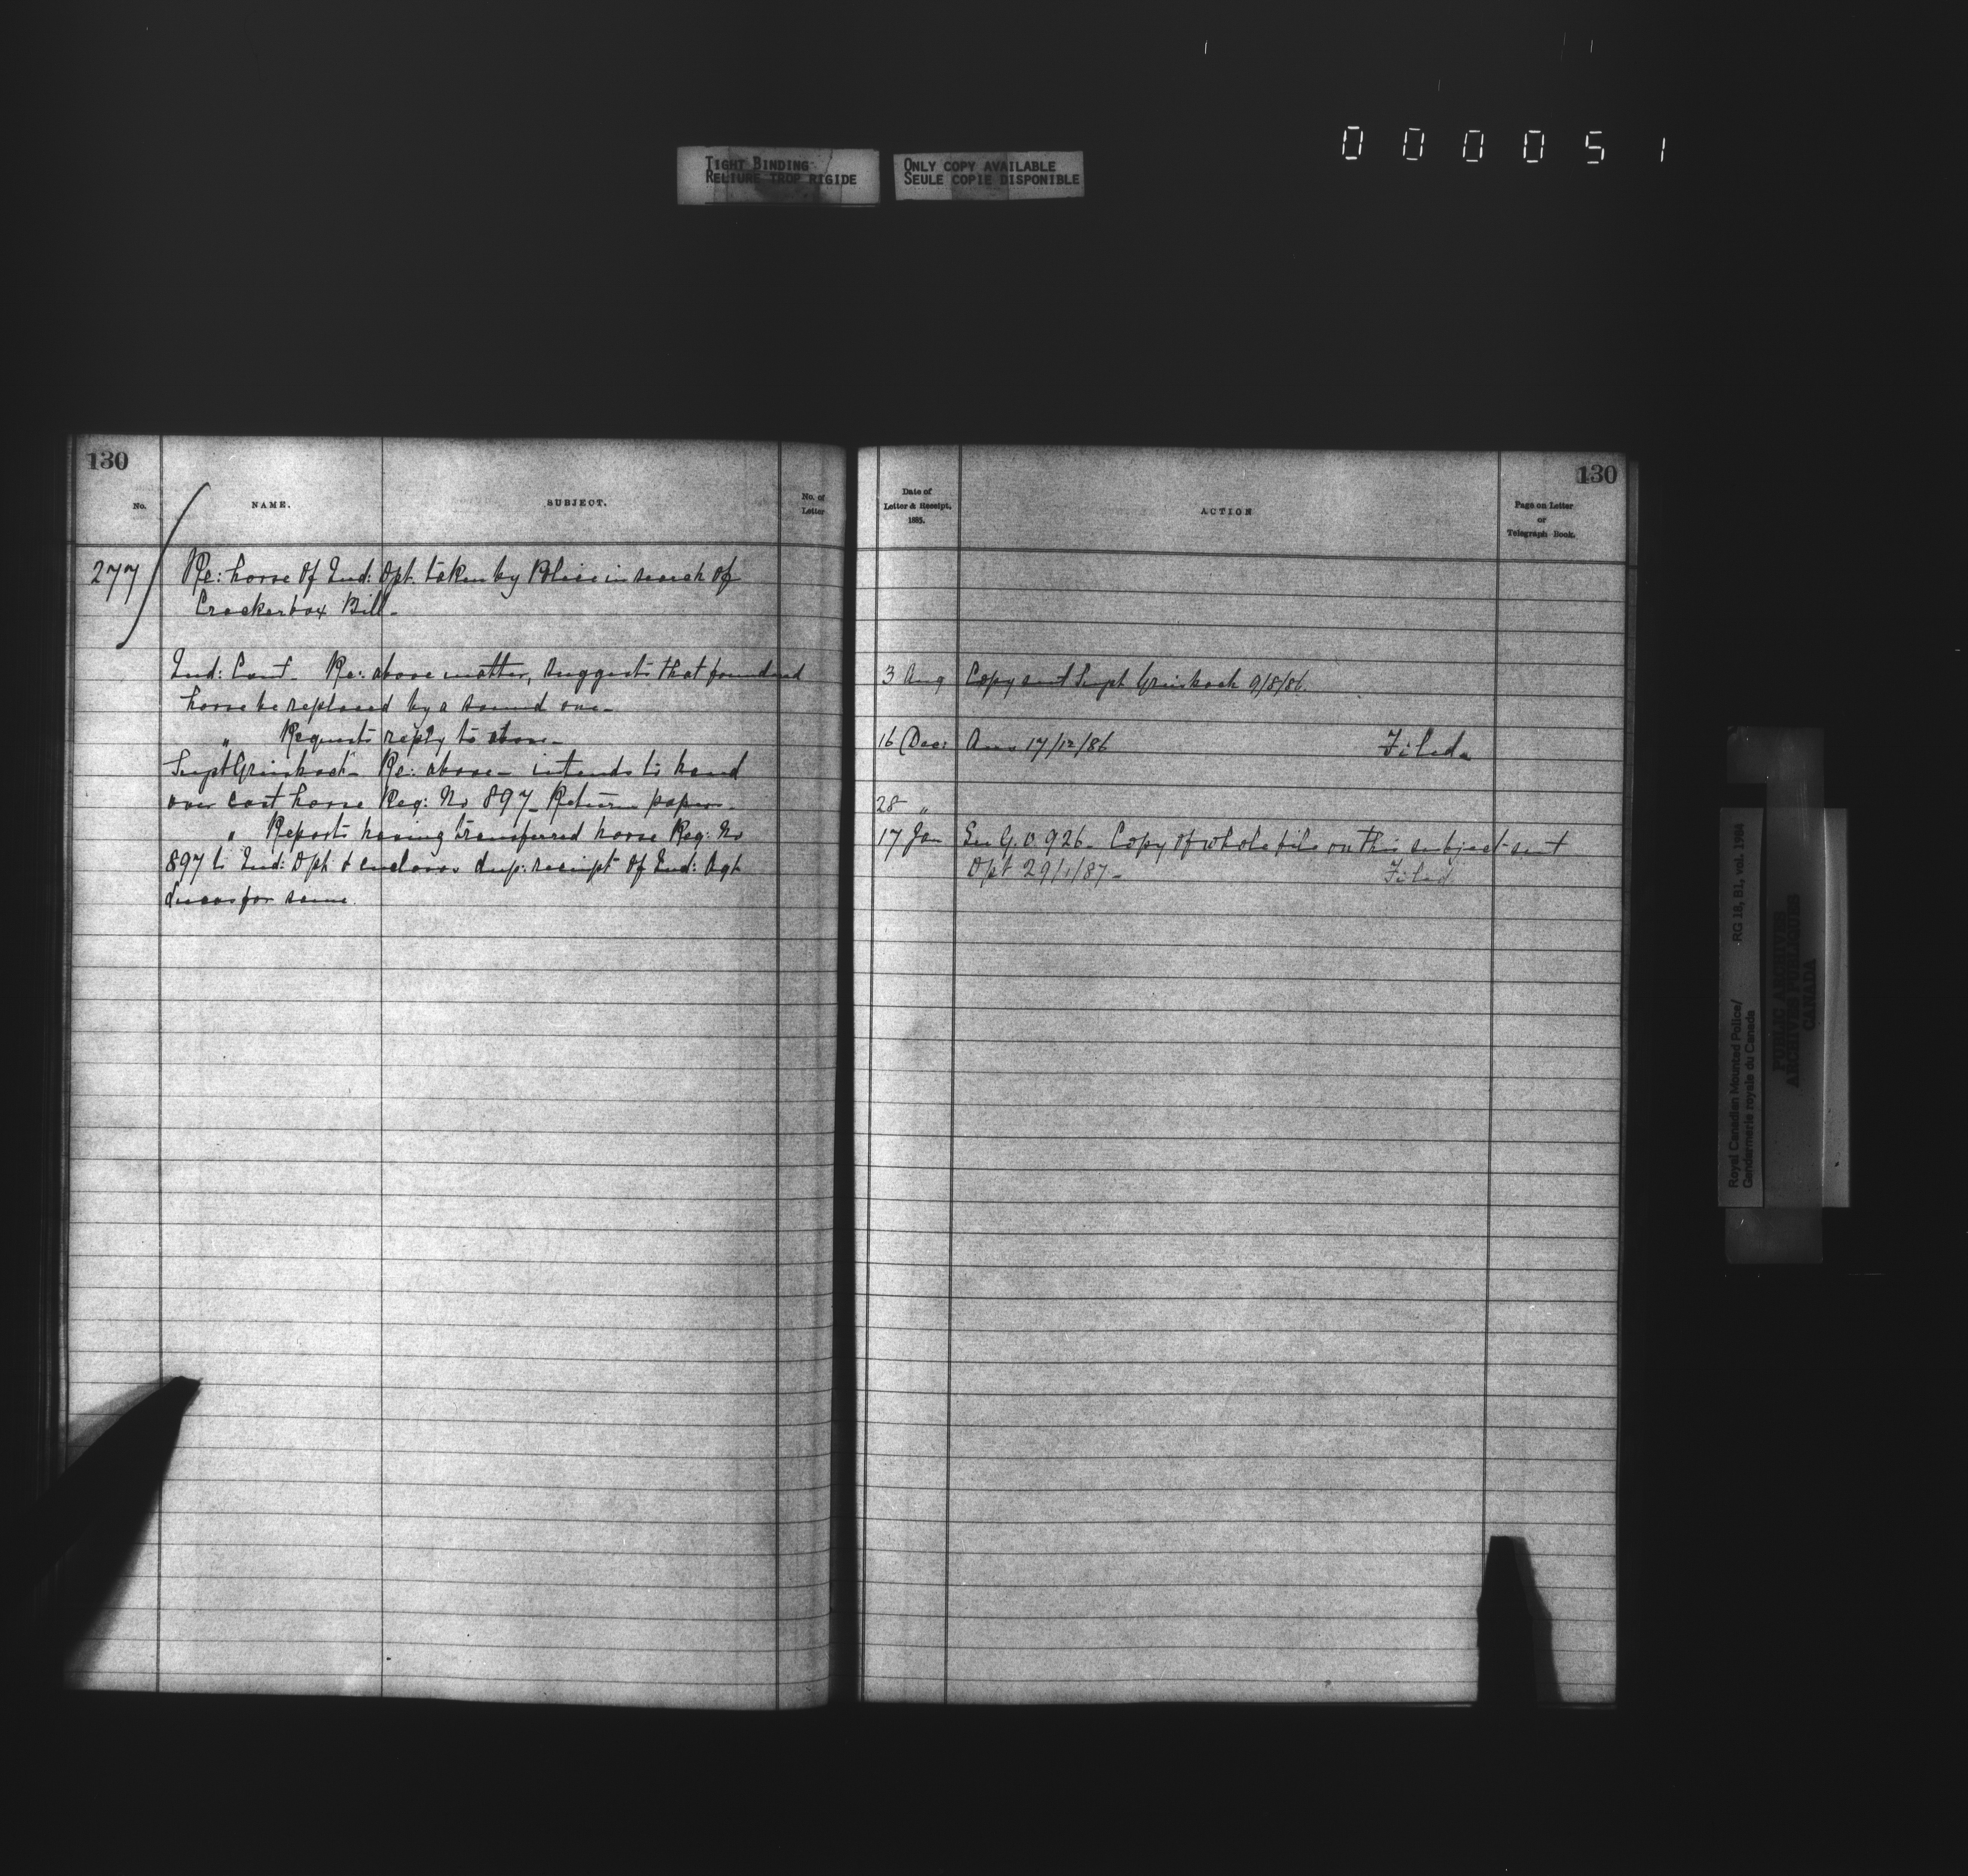 000051
TIGHT BINDING
RELIURE TROP RIGIDE
ONLY COPY AVAILABLE
SEULE COPIE DISPONIBLE
130
No.
NAME.
SUBJECT.
No. of
Letter
277
Re: horse of Ind: Dpt. taken by Police in search of
Crackerbox Bill-
Ind: Com. Re: above matter, suggests that foundered
horse be replaced by a sound one-
" Requests reply to above-
Supt Griesbach- Re: above- intends to hand
over cast horse Reg: No 897- Return papers-
" Reports having transferred horse Reg: No
897 to Ind: Dpt & encloses dup: receipt of Ind: Agt
for same.
130
Date of
Letter & Receipt,
1885.
ACTION
Page on Letter
or
Telegraph Book.
3 Aug Copy sent Supt Griesbach 9/8/86.
16 Dec: Ans 17/12/86 Filed
28 "
17 Jan See G.O 926- Copy of whole file on this subject sent
Dpt 29/1/87- Filed
Royal Canadian Mounted Police/
Gendarmerie royale du Canada
RG 18, B1, vol. 1984
PUBLIC ARCHIVES
ARCHIVES PUBLIQUES
CANADA